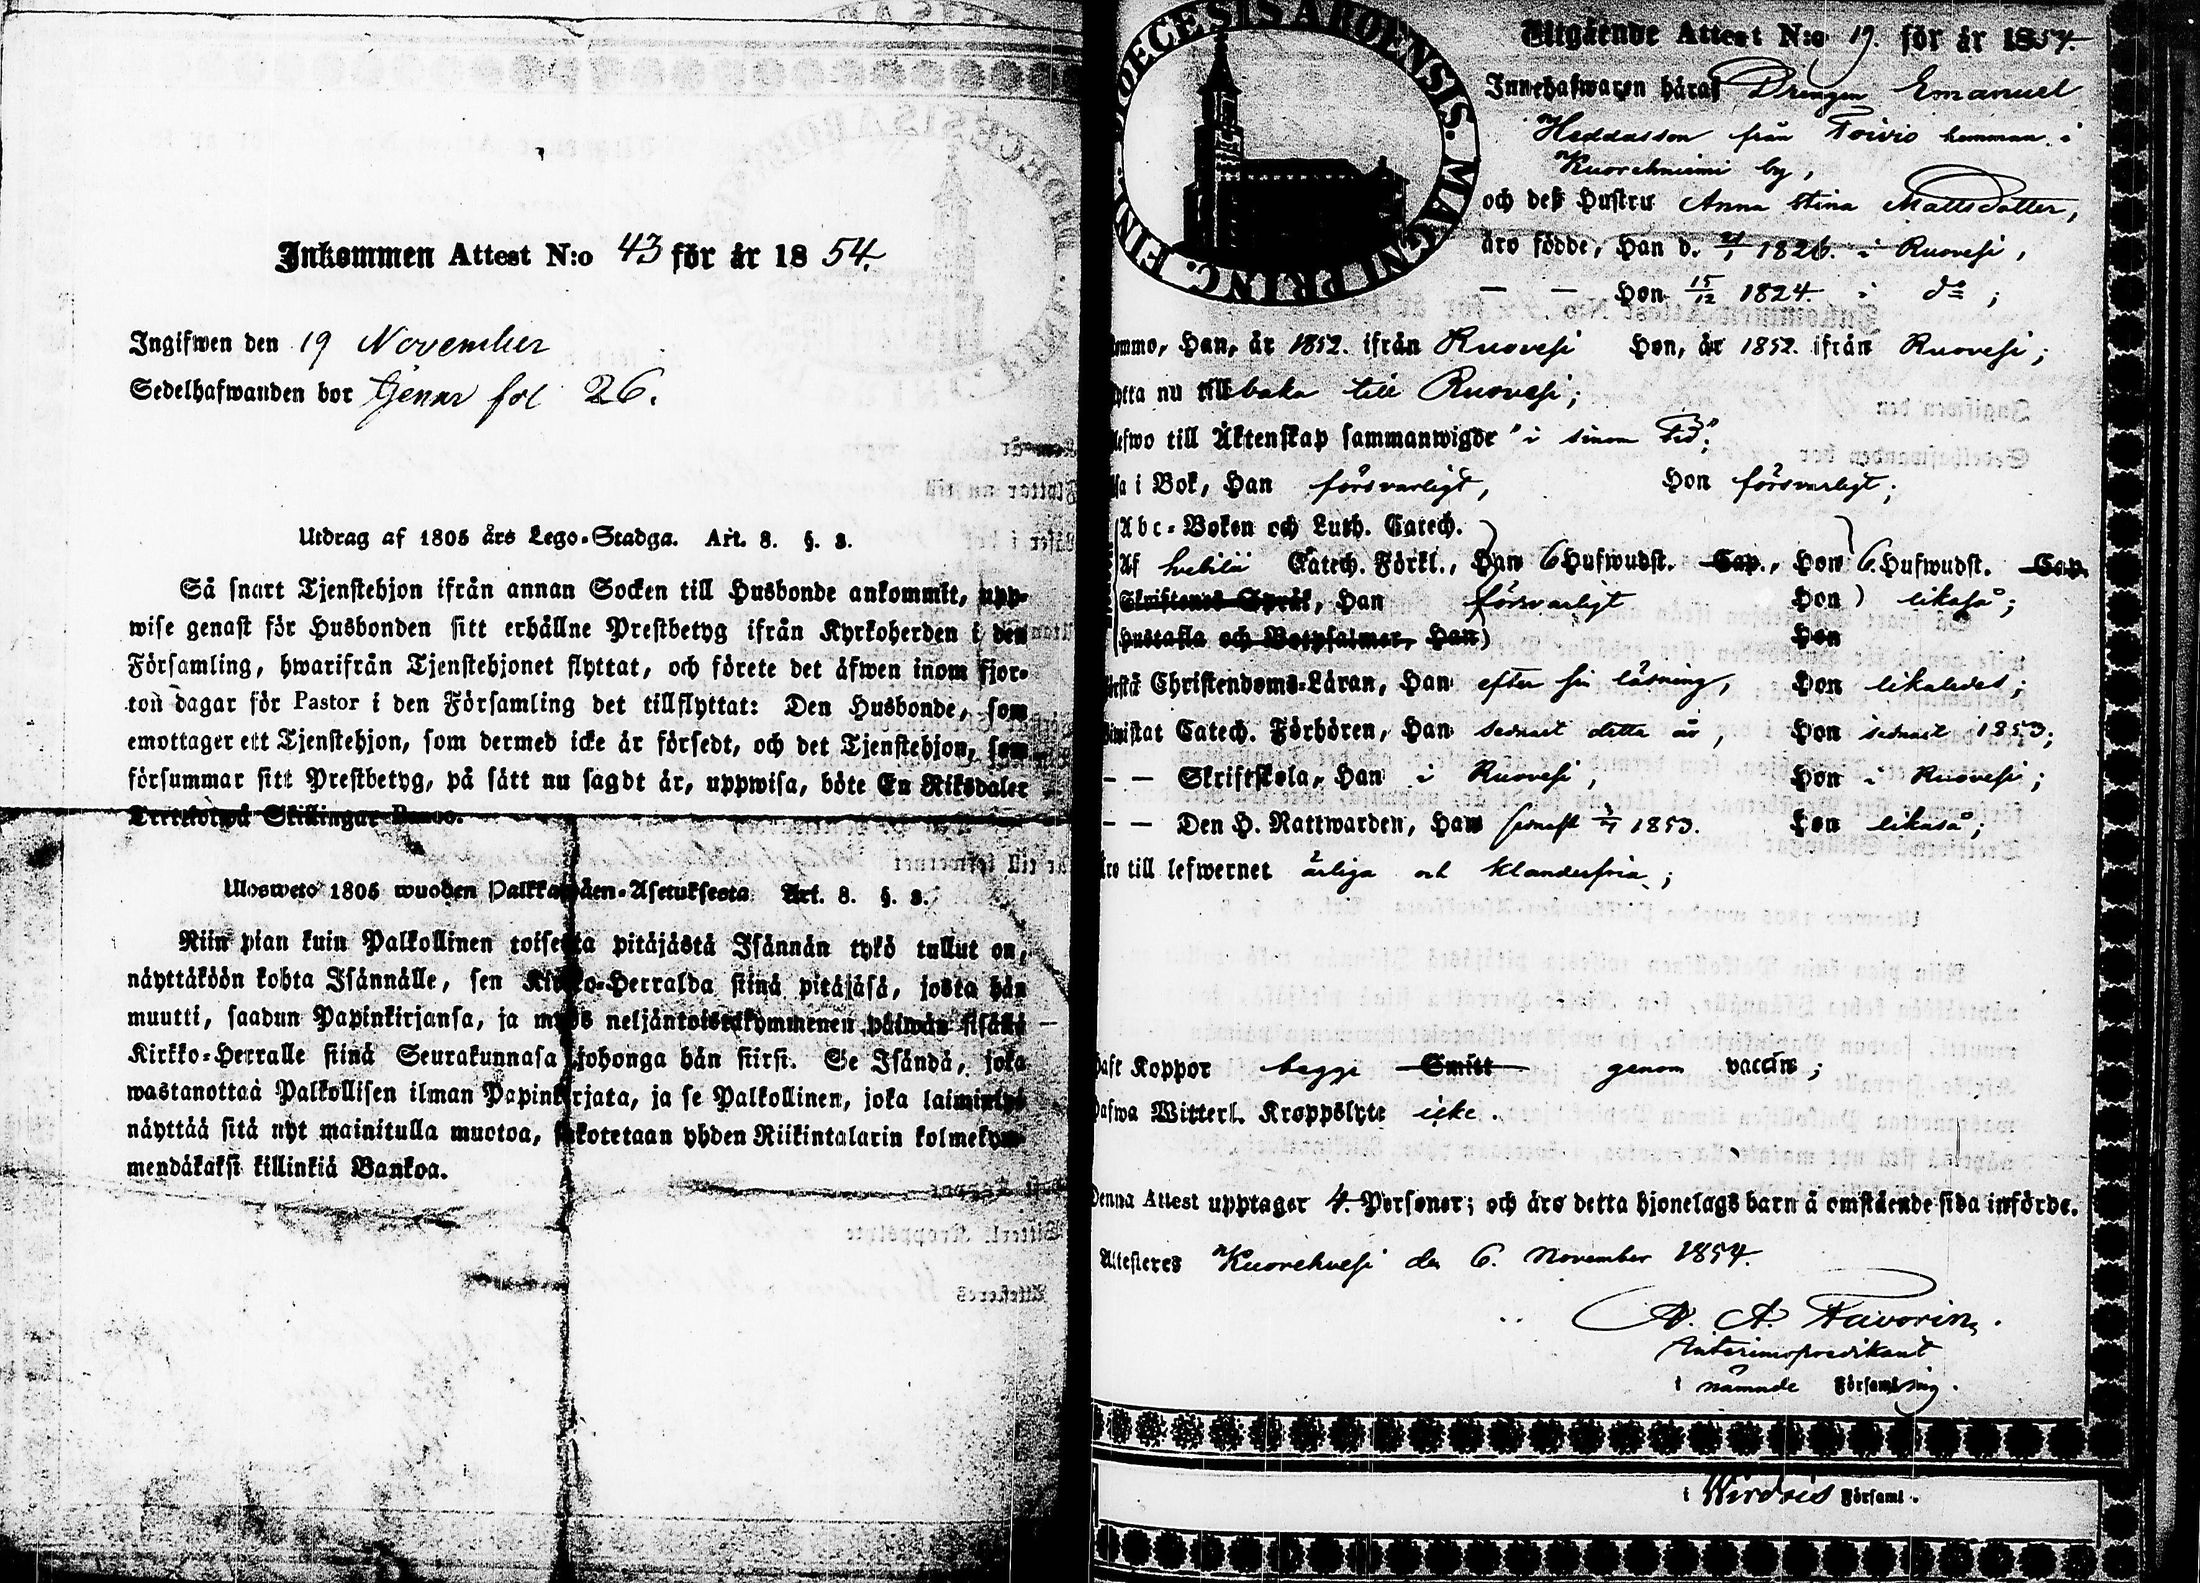 Inkommen Attest N:o 43 för år 1854.
Ingifwen den 19 November
Sedelhafwanden bor fol 26.
Utdrag af 1805 års Lego-Stadga. Art. 8. §. 3.
Så snart Tjenstehjon ifrån annan Socken till Husbonde ankommit, upp-
wise genast för Husbonden sitt erhållne Prestbetyg ifrån Kyrkoherden i den
Församling, hwarifrån Tjenstehjonet flyttat, och förete det äfwen inom fjor-
ton dagar för Pastor i den Församling det tillflyttat: Den Husbonde, som
emottager ett Tjenstehjon, som dermed icke är försedt, och det Tjenstehjon, som
försummar sitt Prestbetyg, på sätt nu sagdt är, uppwisa, böte En Riksdaler
Trettiotwå Skillingar Banco.
Ulosweto 1805 wuoden Palkkawäen-Asetuksesta. Art. 8. §. 3.
Niin pian kuin Palkollinen toisesta pitäjästä Isännän tykö tullut on,
näyttäköön kohta Isännälle, sen Kirkko-Herralda siinä pitäjäsä, josta hän
muutti, saadun Papinkirjansa, ja myös neljäntoistakymmenen päiwän sisällä
Kirkko-Herralle siinä Seurakunnasa johonga hän siirsi. Se Isändä, joka
wastanottaa Palkollisen ilman Papinkirjata, ja se Palkollinen, joka laiminlyö
näyttää sitä nyt mainitulla muotoa, sakotetaan yhden Riikintalarin kolmekym-
mendäkaksi killinkiä Bankoa.
DIOECESIS ABOENSIS. MAGNI PRINC. FINL.
Utgående Attest N:o 19. för år 1854.
Innehafwaren häraf Drengen Emanuel
Heddasson från Toivio hemman i
Kuorehniemi by,
och deß Hustru Anna Stina Mattsdotter,
äro födde, Han d. 21/1 1826. i Ruovesi,
— — Hon 15/12 1824. i do;
komme, Han, år 1852. ifrån Ruovesi Hon, år 1852. ifrån Ruovesi;
flytta nu tillbaka till Ruovesi;
blefwo till Äktenskap sammanwigde "i sinom tid";
läsa i Bok, Han försvarligt, Hon försvarligt;
Abc-Boken och Luth. Catech.
Af Svebilii Catech. Förkl., Han 6 Hufwudst. Cap., Hon 6. Hufwudst. Cap.
Skriftenes Språk, Han försvarligt Hon likaså;
Hustafla och Botpsalmer, Han Hon
förstå Christendoms-Läran, Han efter sin läsning, Hon likaledes;
bewistat Catech. Förhören, Han sednast detta år, Hon sednast 1853;
— — Skriftskola, Han i Ruovesi, Hon i Ruovesi;
— — Den H. Nattwarden, Han sednast 1853. Hon likaså;
äro till lefwernet ärliga och klanderfria;
haft Koppor begge Smitt genom vaccin;
hafwa Witterl. Kroppslyte icke.
Denna Attest upptager 4. Personer; och äro detta hjonelags barn å omstående sida införde.
Attesteres Kuorehvesi den 6. November 1854.
A. Favorin,
Interimspredikant
i nämnde Församling.
i Wirdois Församl.